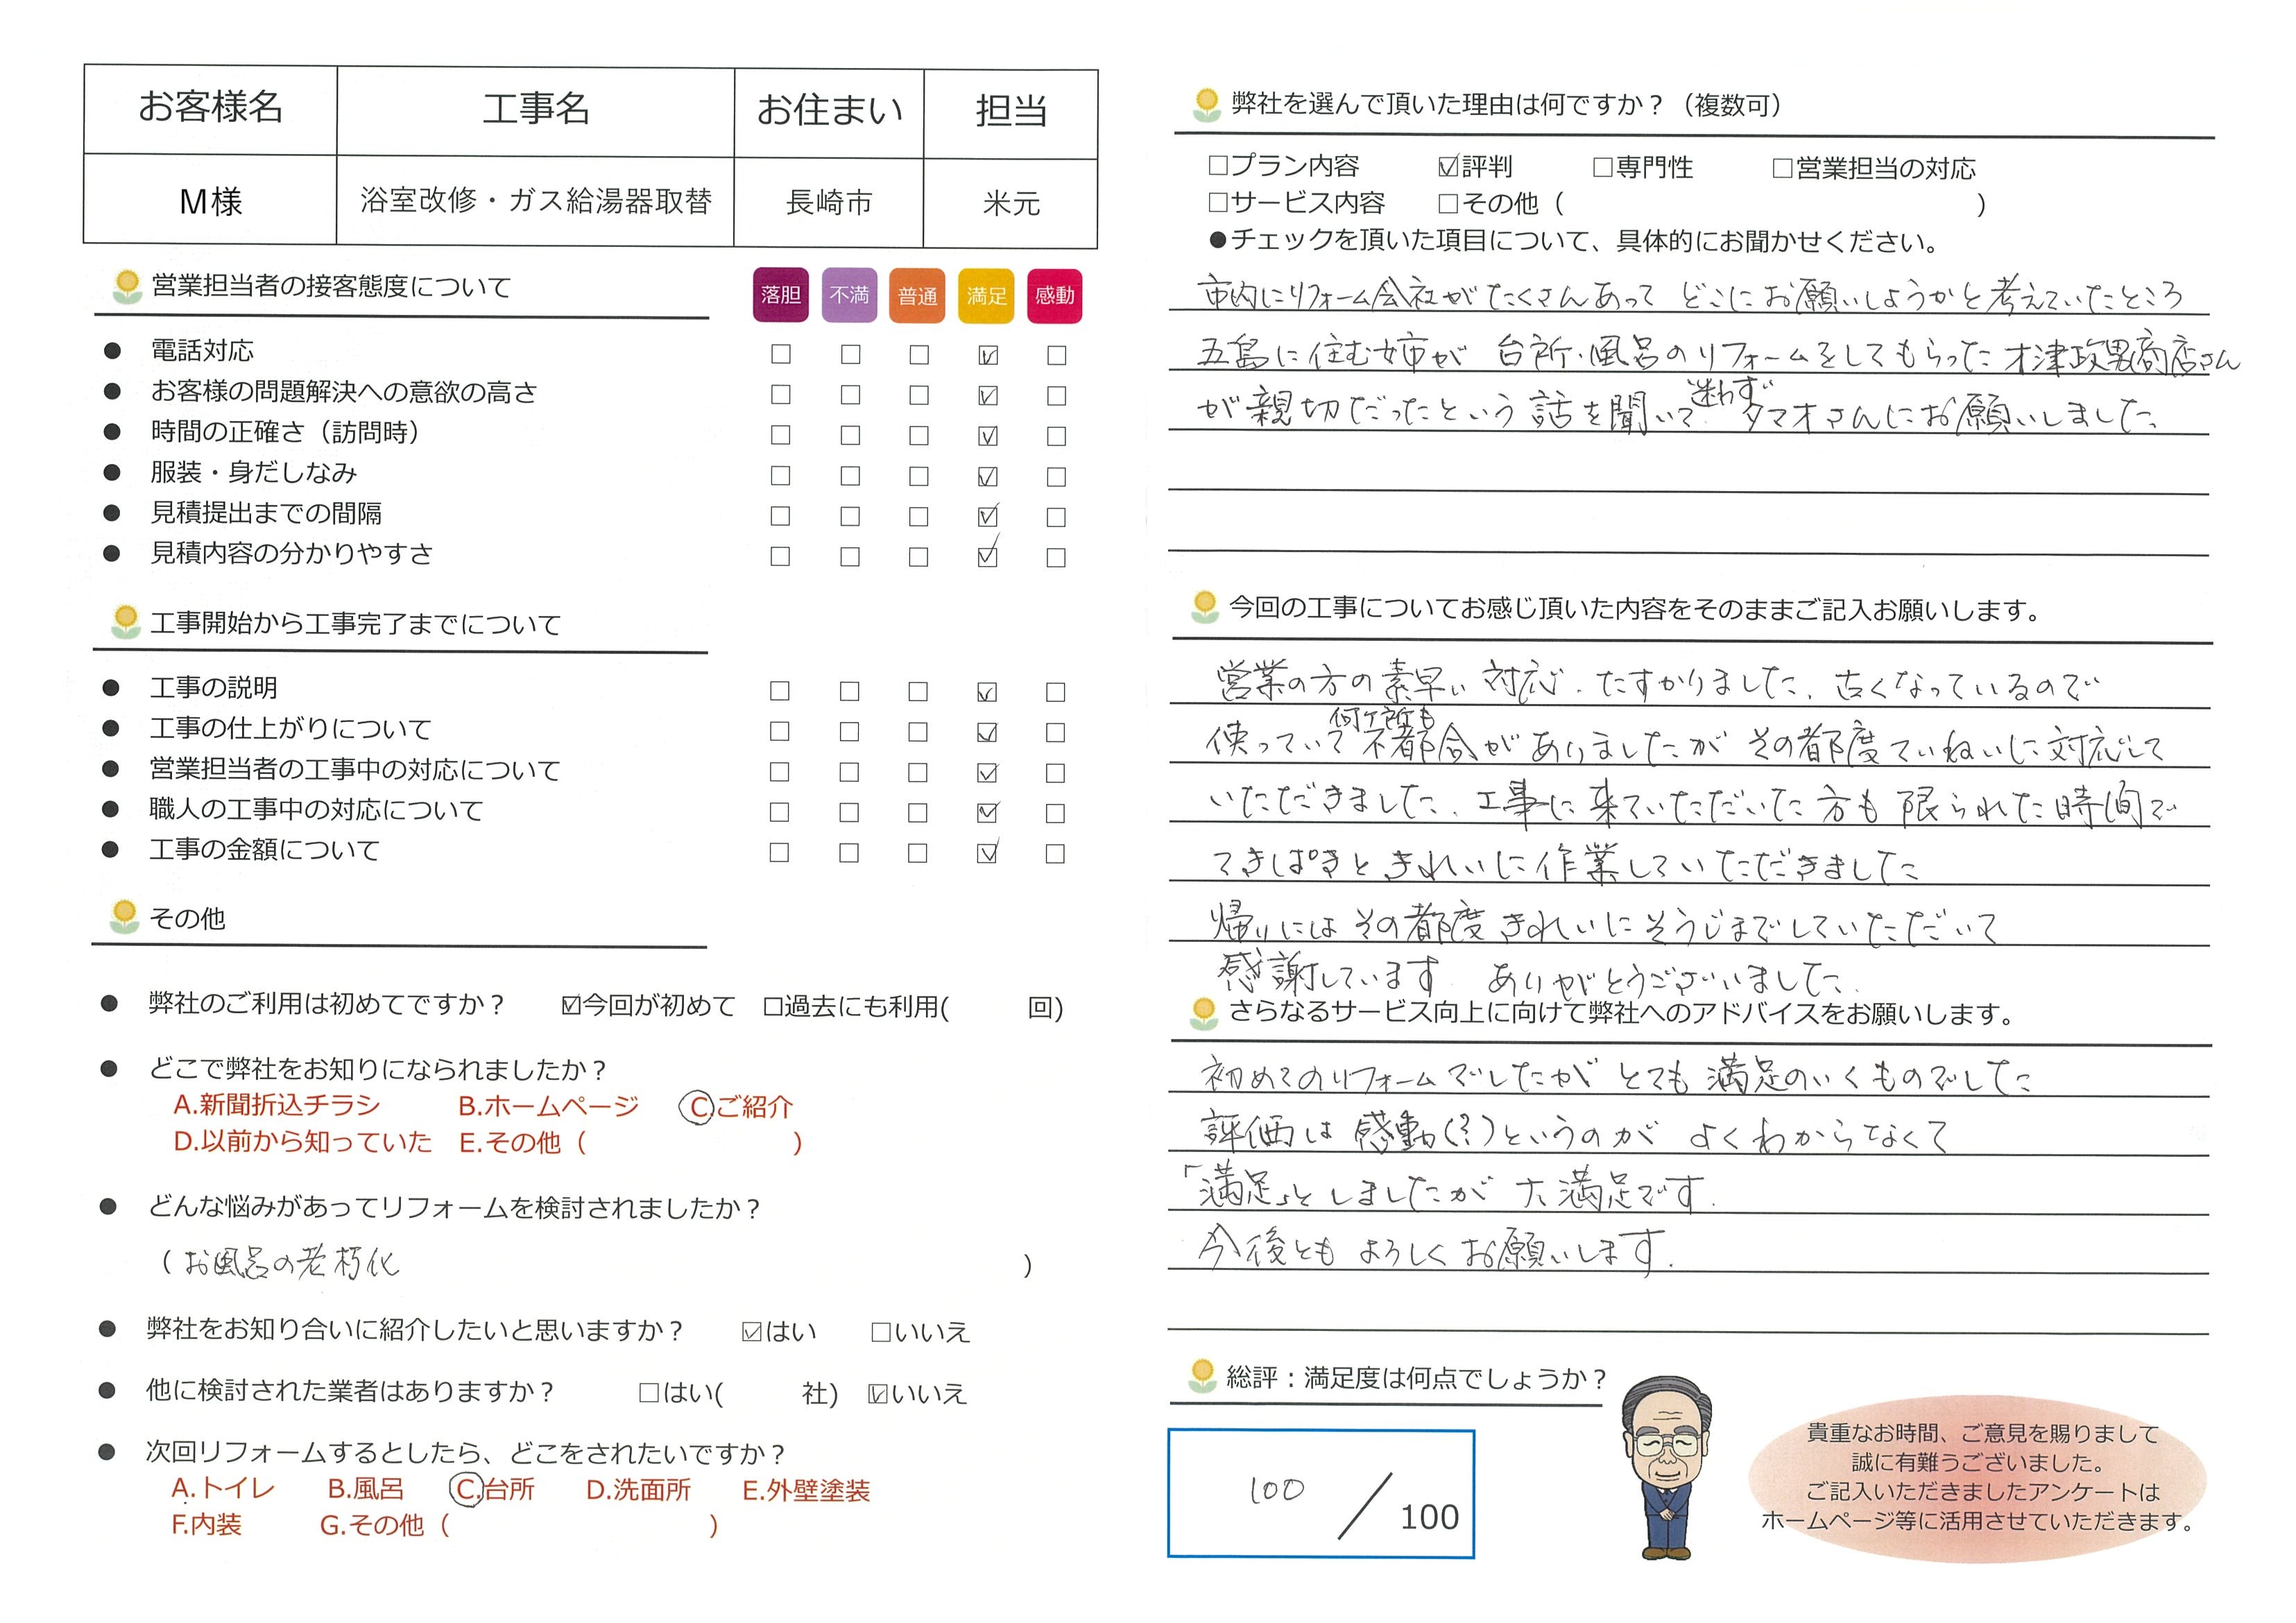 お客様名 工事名 お住まい 担当
M様 浴室改修・ガス給湯器取替 長崎市 米元
営業担当者の接客態度について 落胆 不満 普通 満足 感動
● 電話対応 □ □ □ ☑ □
● お客様の問題解決への意欲の高さ □ □ □ ☑ □
● 時間の正確さ（訪問時） □ □ □ ☑ □
● 服装・身だしなみ □ □ □ ☑ □
● 見積提出までの間隔 □ □ □ ☑ □
● 見積内容の分かりやすさ □ □ □ ☑ □
工事開始から工事完了までについて
● 工事の説明 □ □ □ ☑ □
● 工事の仕上がりについて □ □ □ ☑ □
● 営業担当者の工事中の対応について □ □ □ ☑ □
● 職人の工事中の対応について □ □ □ ☑ □
● 工事の金額について □ □ □ ☑ □
その他
● 弊社のご利用は初めてですか？ ☑今回が初めて □過去にも利用( 回)
● どこで弊社をお知りになられましたか？
A.新聞折込チラシ B.ホームページ C.ご紹介
D.以前から知っていた E.その他（ ）
● どんな悩みがあってリフォームを検討されましたか？
（お風呂の老朽化 ）
● 弊社をお知り合いに紹介したいと思いますか？ ☑はい □いいえ
● 他に検討された業者はありますか？ □はい( 社) ☑いいえ
● 次回リフォームするとしたら、どこをされたいですか？
A.トイレ B.風呂 C.台所 D.洗面所 E.外壁塗装
F.内装 G.その他（ ）
弊社を選んで頂いた理由は何ですか？（複数可）
□プラン内容 ☑評判 □専門性 □営業担当の対応
□サービス内容 □その他（ ）
●チェックを頂いた項目について、具体的にお聞かせください。
市内にリフォーム会社がたくさんあって どこにお願いしようかと考えていたところ
五島に住む姉が 台所・風呂のリフォームをしてもらった才津政男商店さん
が親切だったという話を聞いて 迷わず タマオさんにお願いしました
今回の工事についてお感じ頂いた内容をそのままご記入お願いします。
営業の方の素早い対応、たすかりました。古くなっているので
使っていて何ヶ所も不都合がありましたが その都度ていねいに対応して
いただきました。工事に来ていただいた方も限られた時間で
てきぱきと きれいに作業していただきました
帰りにはその都度きれいにそうじまでしていただいて
感謝しています ありがとうございました。
さらなるサービス向上に向けて弊社へのアドバイスをお願いします。
初めてのリフォームでしたが とても満足のいくものでした
評価は 感動(?)というのが よくわからなくて
「満足」としましたが 大満足です。
今後とも よろしくお願いします。
総評：満足度は何点でしょうか？
100 / 100
貴重なお時間、ご意見を賜りまして
誠に有難うございました。
ご記入いただきましたアンケートは
ホームページ等に活用させていただきます。